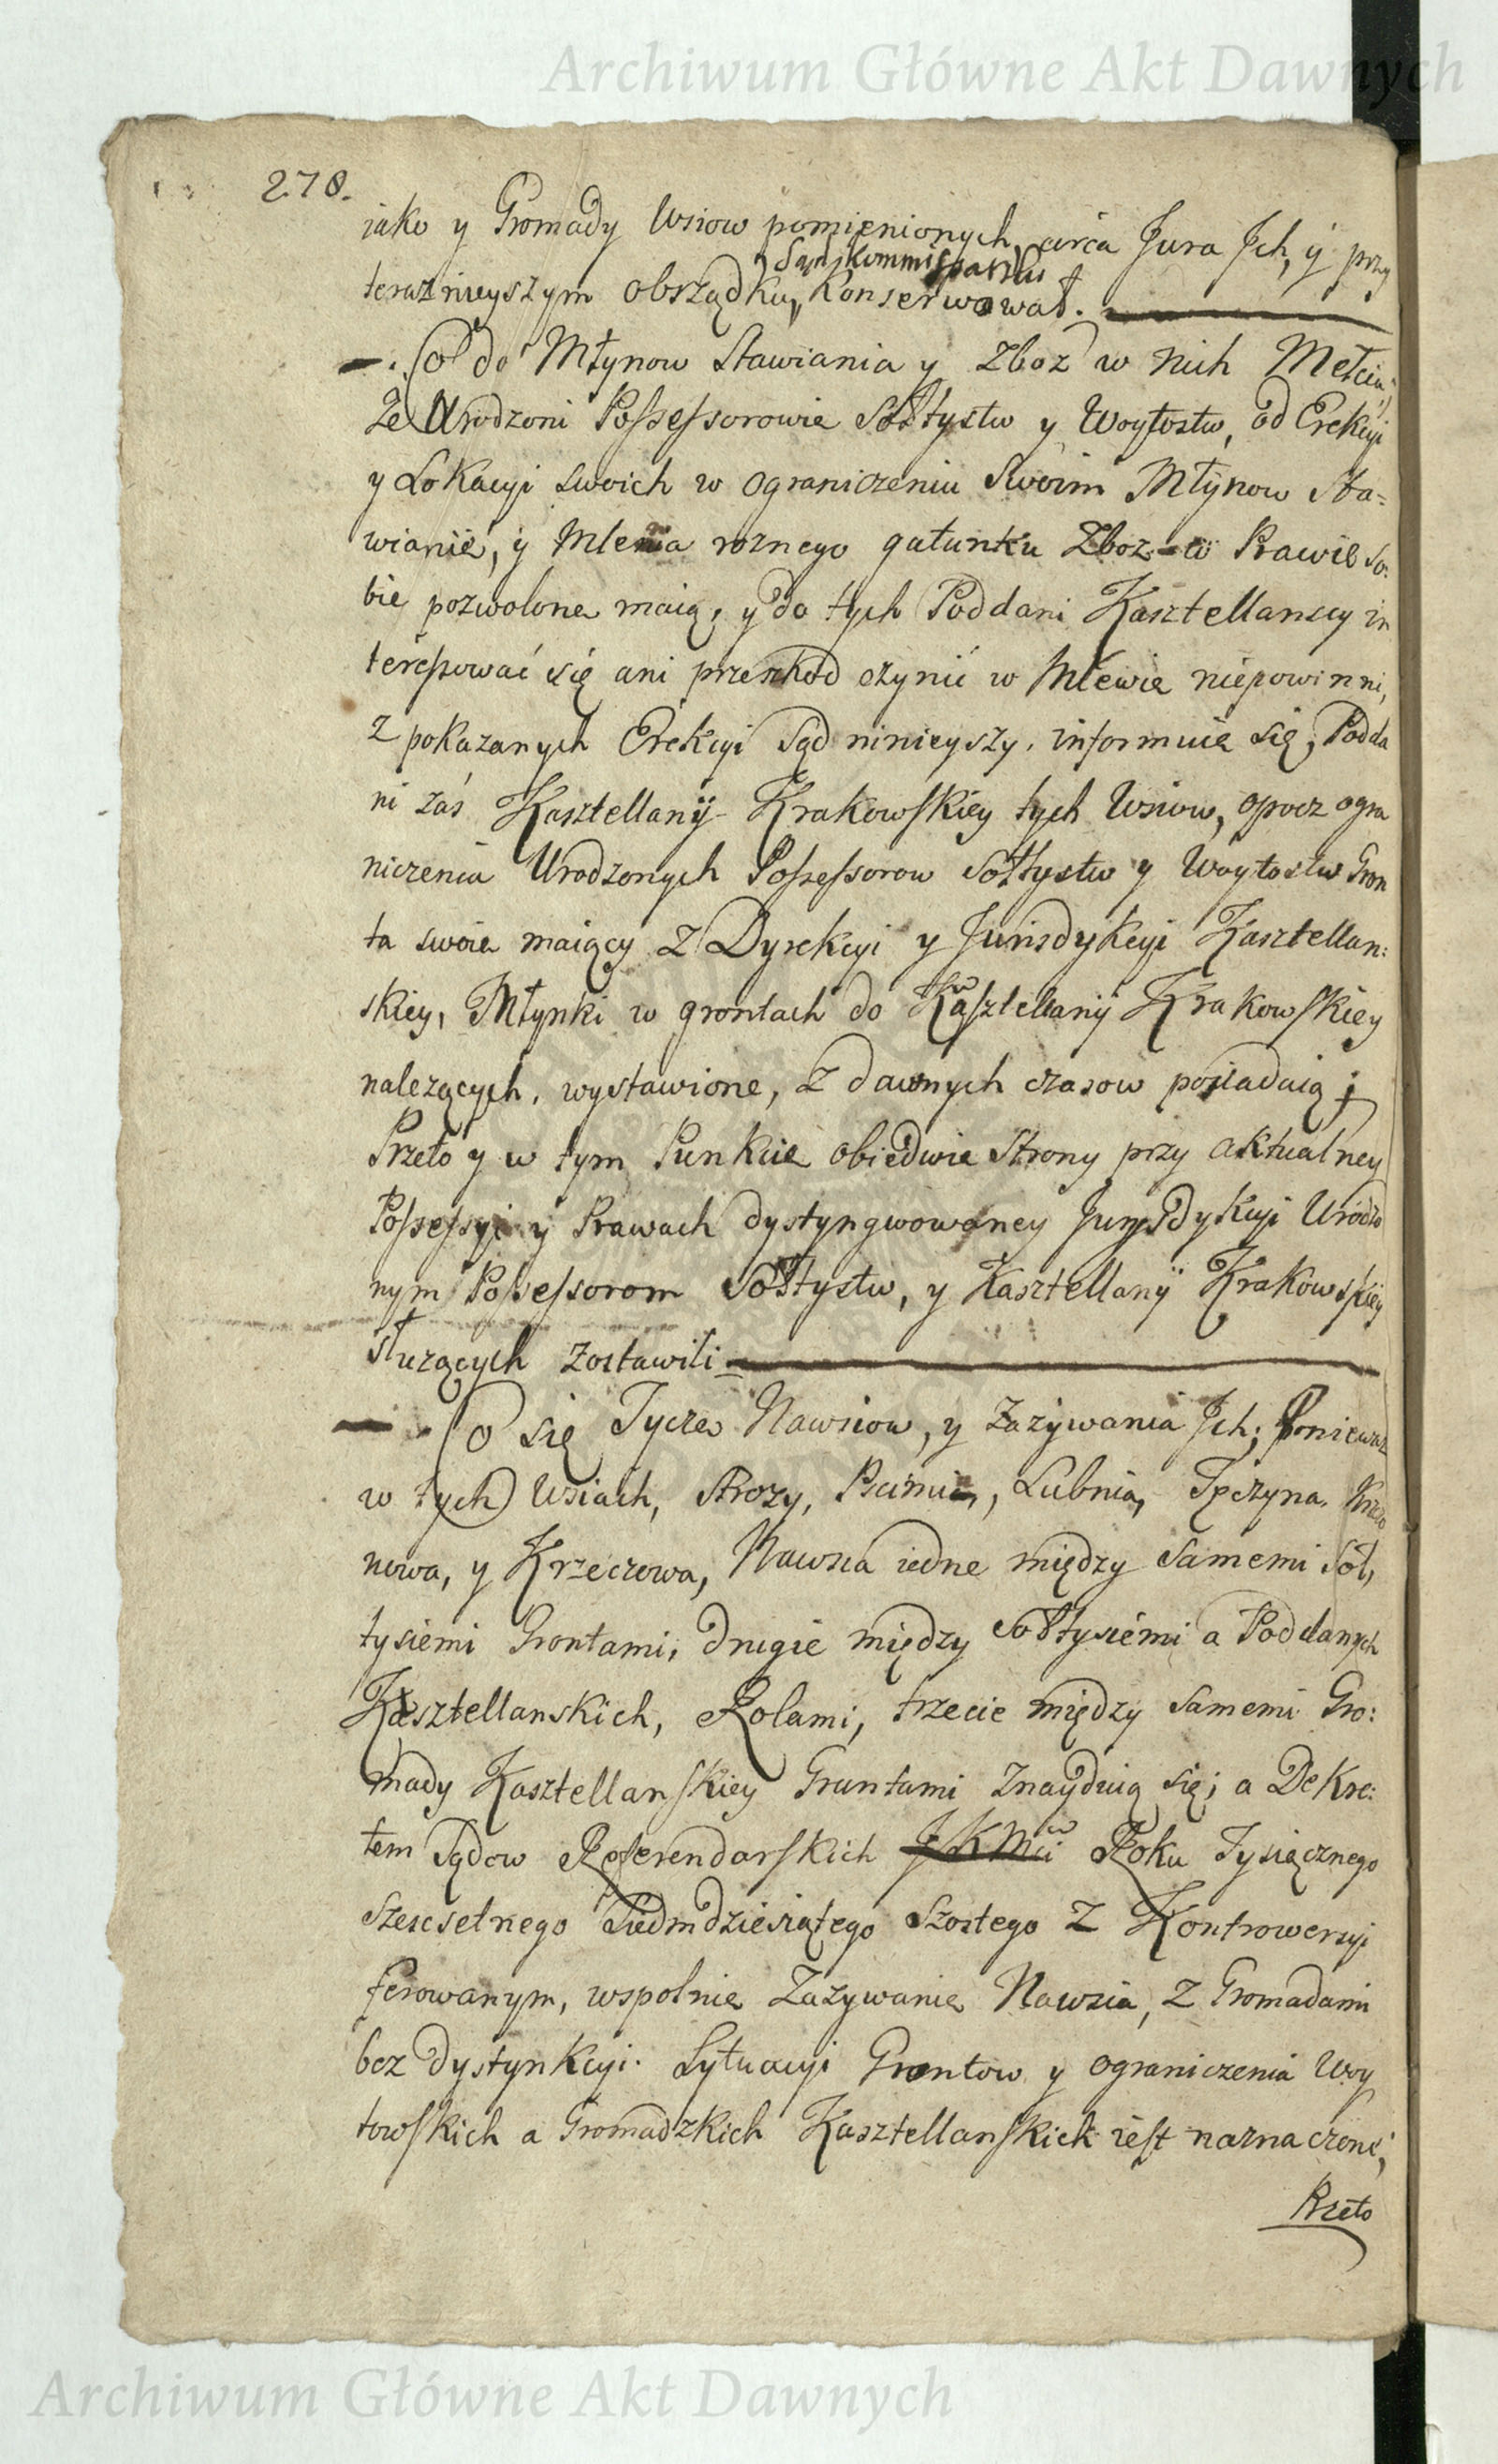 Archiwum Główne Akt Dawnych
278.
iako y Gromady Wsiow pomienionych, circa Jura Jch, y przy
Sąd Kommissarski
teraznieyszym obrządku, Konserwował.
Co do Młynow Stawiania y Zboz w nich Mełcia,
Ze Urodzoni Possessorowie Sołtystw y Woytostw, od Erekcyi
y Lokacyi swoich w ograniczeniu Swoim Młynow Sta=
wianie, y Mlenia roznego gatunku Zboz w Prawie so:
bie pozwolone maią, y do tych Poddani Kasztellanscy in
teressować się ani przeszkod czynić w Mlewie niepowinni,
z pokazanych Erekcyi Sąd ninieyszy, informuie się, Podda
ni zaś Kasztellanÿ Krakowskiey tych Wsiow, oprocz ogra
niczenia Urodzonych Possessorow Sołtystw y Woytostw Gron
ta swoie maiący z Dyrekcyi y Jurisdykcyi Kasztellan:
skiey, Młynki w grontach do Kasztellanÿ Krakowskiey
nalezących, wystawione, z dawnych czasow posiadaią;
Przeto y w tym Punkcie obiedwie Strony przy aktualney
Possessyi y Prawach dystyngwowaney Jurysdykcyi Urodzo
nym Possessorom Sołtystw, y Kasztellanÿ Krakowskiey
słuzących zostawili
Co się Tycze Nawsiow, y Zazywania Jch; Poniewaz
w tych Wsiach, Strozy, Pcimia, Lubnia, Tęczyna, Krzczo
nowa, y Krzeczowa, Nawsia iedne między Samemi Soł,
tysiemi Grontami, drugie między Sołtysiemi a Poddanych
Kasztellanskich, Rolami, trzecie między Samemi Gro:
mady Kasztellanskiey Gruntami znayduią się; a Dekre:
tem Sądow Referendarskich JKMci Roku Tysiącznego
Szescsetnego Siedmdziesiątego Szostego z Kontrowersyi
ferowanym, wspolnie Zazywanie Nawsia, z Gromadami
bez dystynkcyi Sytuacyi Grontow y ograniczenia Woy
towskich a Gromadzkich Kasztellanskich iest naznaczone;
Przeto
Archiwum Główne Akt Dawnych